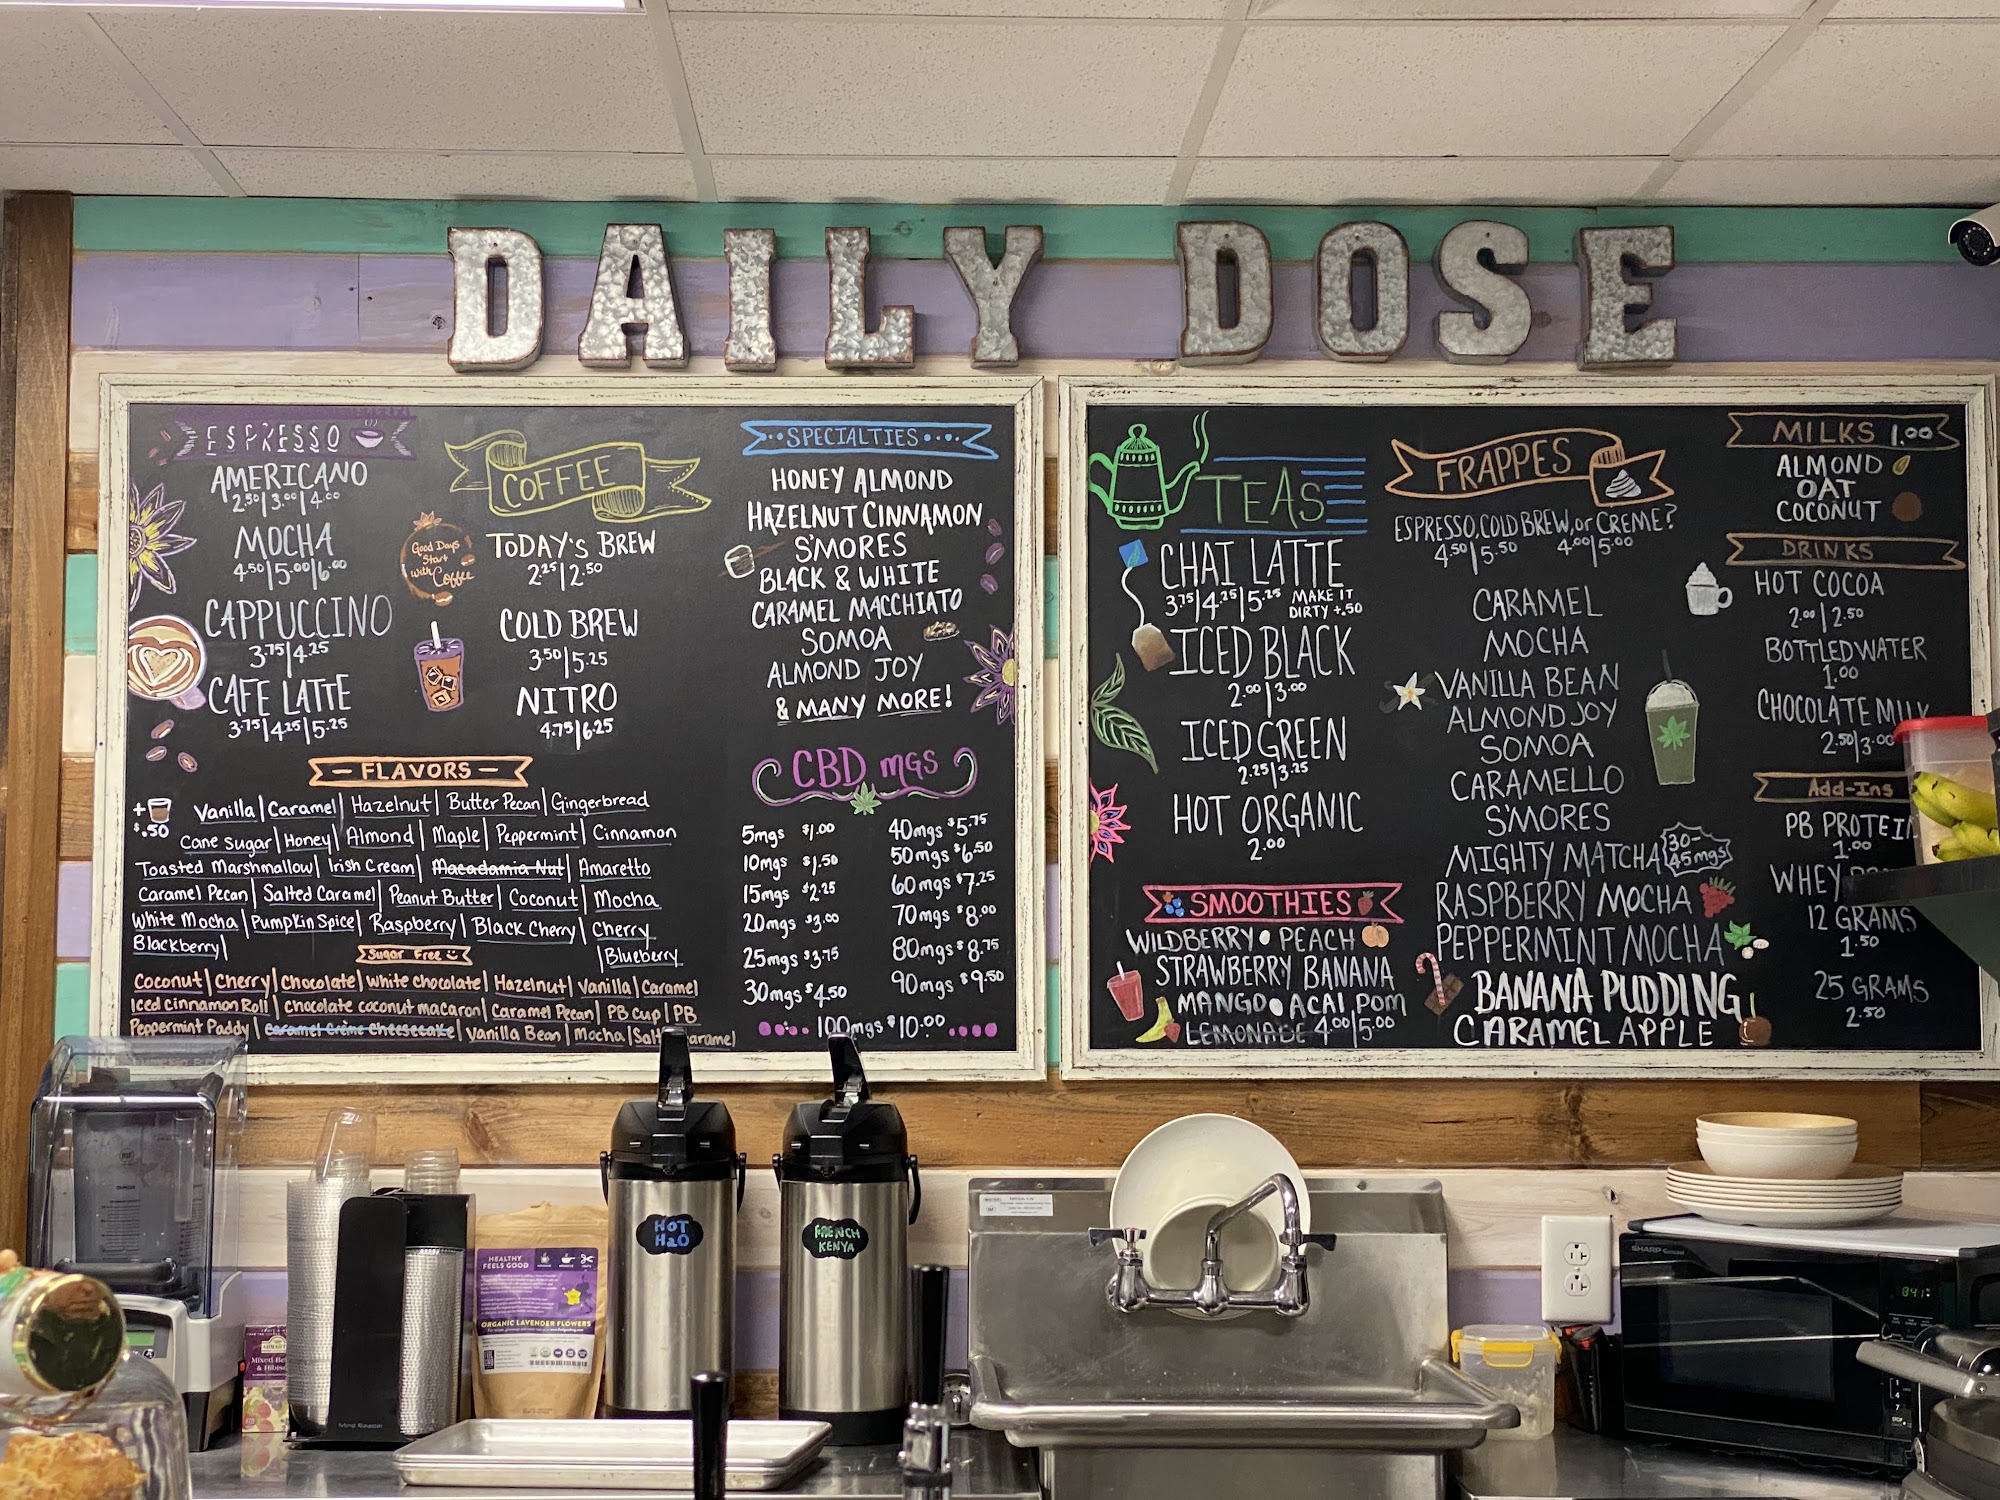 DAILY DOSE
ESPRESSO
AMERICANO
2.50|3.00|4.00
MOCHA
4.50|5.00|6.00
CAPPUCCINO
3.75|4.25
CAFE LATTE
3.75|4.25|5.25
COFFEE
Good Days
Start
with Coffee
TODAY'S BREW
2.25|2.50
COLD BREW
3.50|5.25
NITRO
4.75|6.25
SPECIALTIES
HONEY ALMOND
HAZELNUT CINNAMON
S'MORES
BLACK & WHITE
CARAMEL MACCHIATO
SOMOA
ALMOND JOY
& MANY MORE!
- FLAVORS -
+
$.50
Vanilla | Caramel | Hazelnut | Butter Pecan | Gingerbread
Cane Sugar | Honey | Almond | Maple | Peppermint | Cinnamon
Toasted Marshmallow | Irish Cream | Macadamia Nut | Amaretto
Caramel Pecan | Salted Caramel | Peanut Butter | Coconut | Mocha
White Mocha | Pumpkin Spice | Raspberry | Black Cherry | Cherry
Blackberry | | Blueberry
Sugar Free
Coconut | Cherry | Chocolate | White chocolate | Hazelnut | Vanilla | Caramel
Iced Cinnamon Roll | Chocolate coconut macaron | Caramel Pecan | PB Cup | PB
Peppermint Paddy | Caramel Crème Cheesecake | Vanilla Bean | Mocha | Salt Caramel
CBD MGS
5mgs $1.00
10mgs $1.50
15mgs $2.25
20mgs $3.00
25mgs $3.75
30mgs $4.50
40mgs $5.75
50mgs $6.50
60mgs $7.25
70mgs $8.00
80mgs $8.75
90mgs $9.50
100mgs $10.00
TEAS
CHAI LATTE
3.75|4.25|5.25 MAKE IT
DIRTY +.50
ICED BLACK
2.00|3.00
ICED GREEN
2.25|3.25
HOT ORGANIC
2.00
SMOOTHIES
WILDBERRY • PEACH
STRAWBERRY BANANA
MANGO • ACAI POM
LEMONADE 4.00|5.00
FRAPPES
ESPRESSO, COLD BREW, or CREME?
4.50|5.50 4.00|5.00
CARAMEL
MOCHA
VANILLA BEAN
ALMOND JOY
SOMOA
CARAMELLO
S'MORES
MIGHTY MATCHA 30-
45mgs
RASPBERRY MOCHA
PEPPERMINT MOCHA
BANANA PUDDING
CARAMEL APPLE
MILKS 1.00
ALMOND
OAT
COCONUT
DRINKS
HOT COCOA
2.00|2.50
BOTTLED WATER
1.00
CHOCOLATE MILK
2.50|3.00
Add-Ins
PB PROTEIN
1.00
WHEY
12 GRAMS
1.50
25 GRAMS
2.50
HOT
H2O
FRENCH
KENYA
HEALTHY
FEELS GOOD
ORGANIC LAVENDER FLOWERS
Mind Reader
SHARP